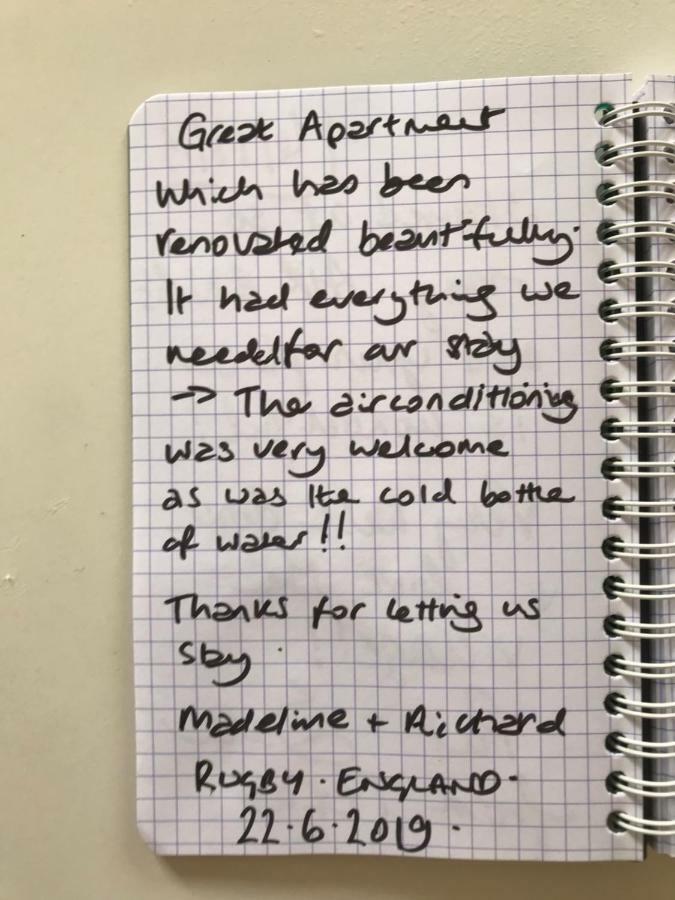 Great Apartment
Which has been
renovated beautifully.
It had everything we
needed for our stay
→ The airconditioning
was very welcome
as was the cold bottle
of water!!
Thanks for letting us
stay.
Madeline + Richard
RUGBY. ENGLAND.
22.6.2019.